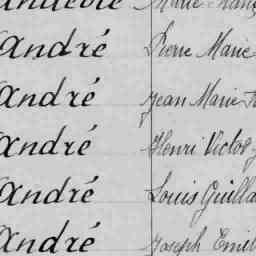 André Pierre Marie
André Jean Marie
André Henri Victor
André Louis
André Joseph